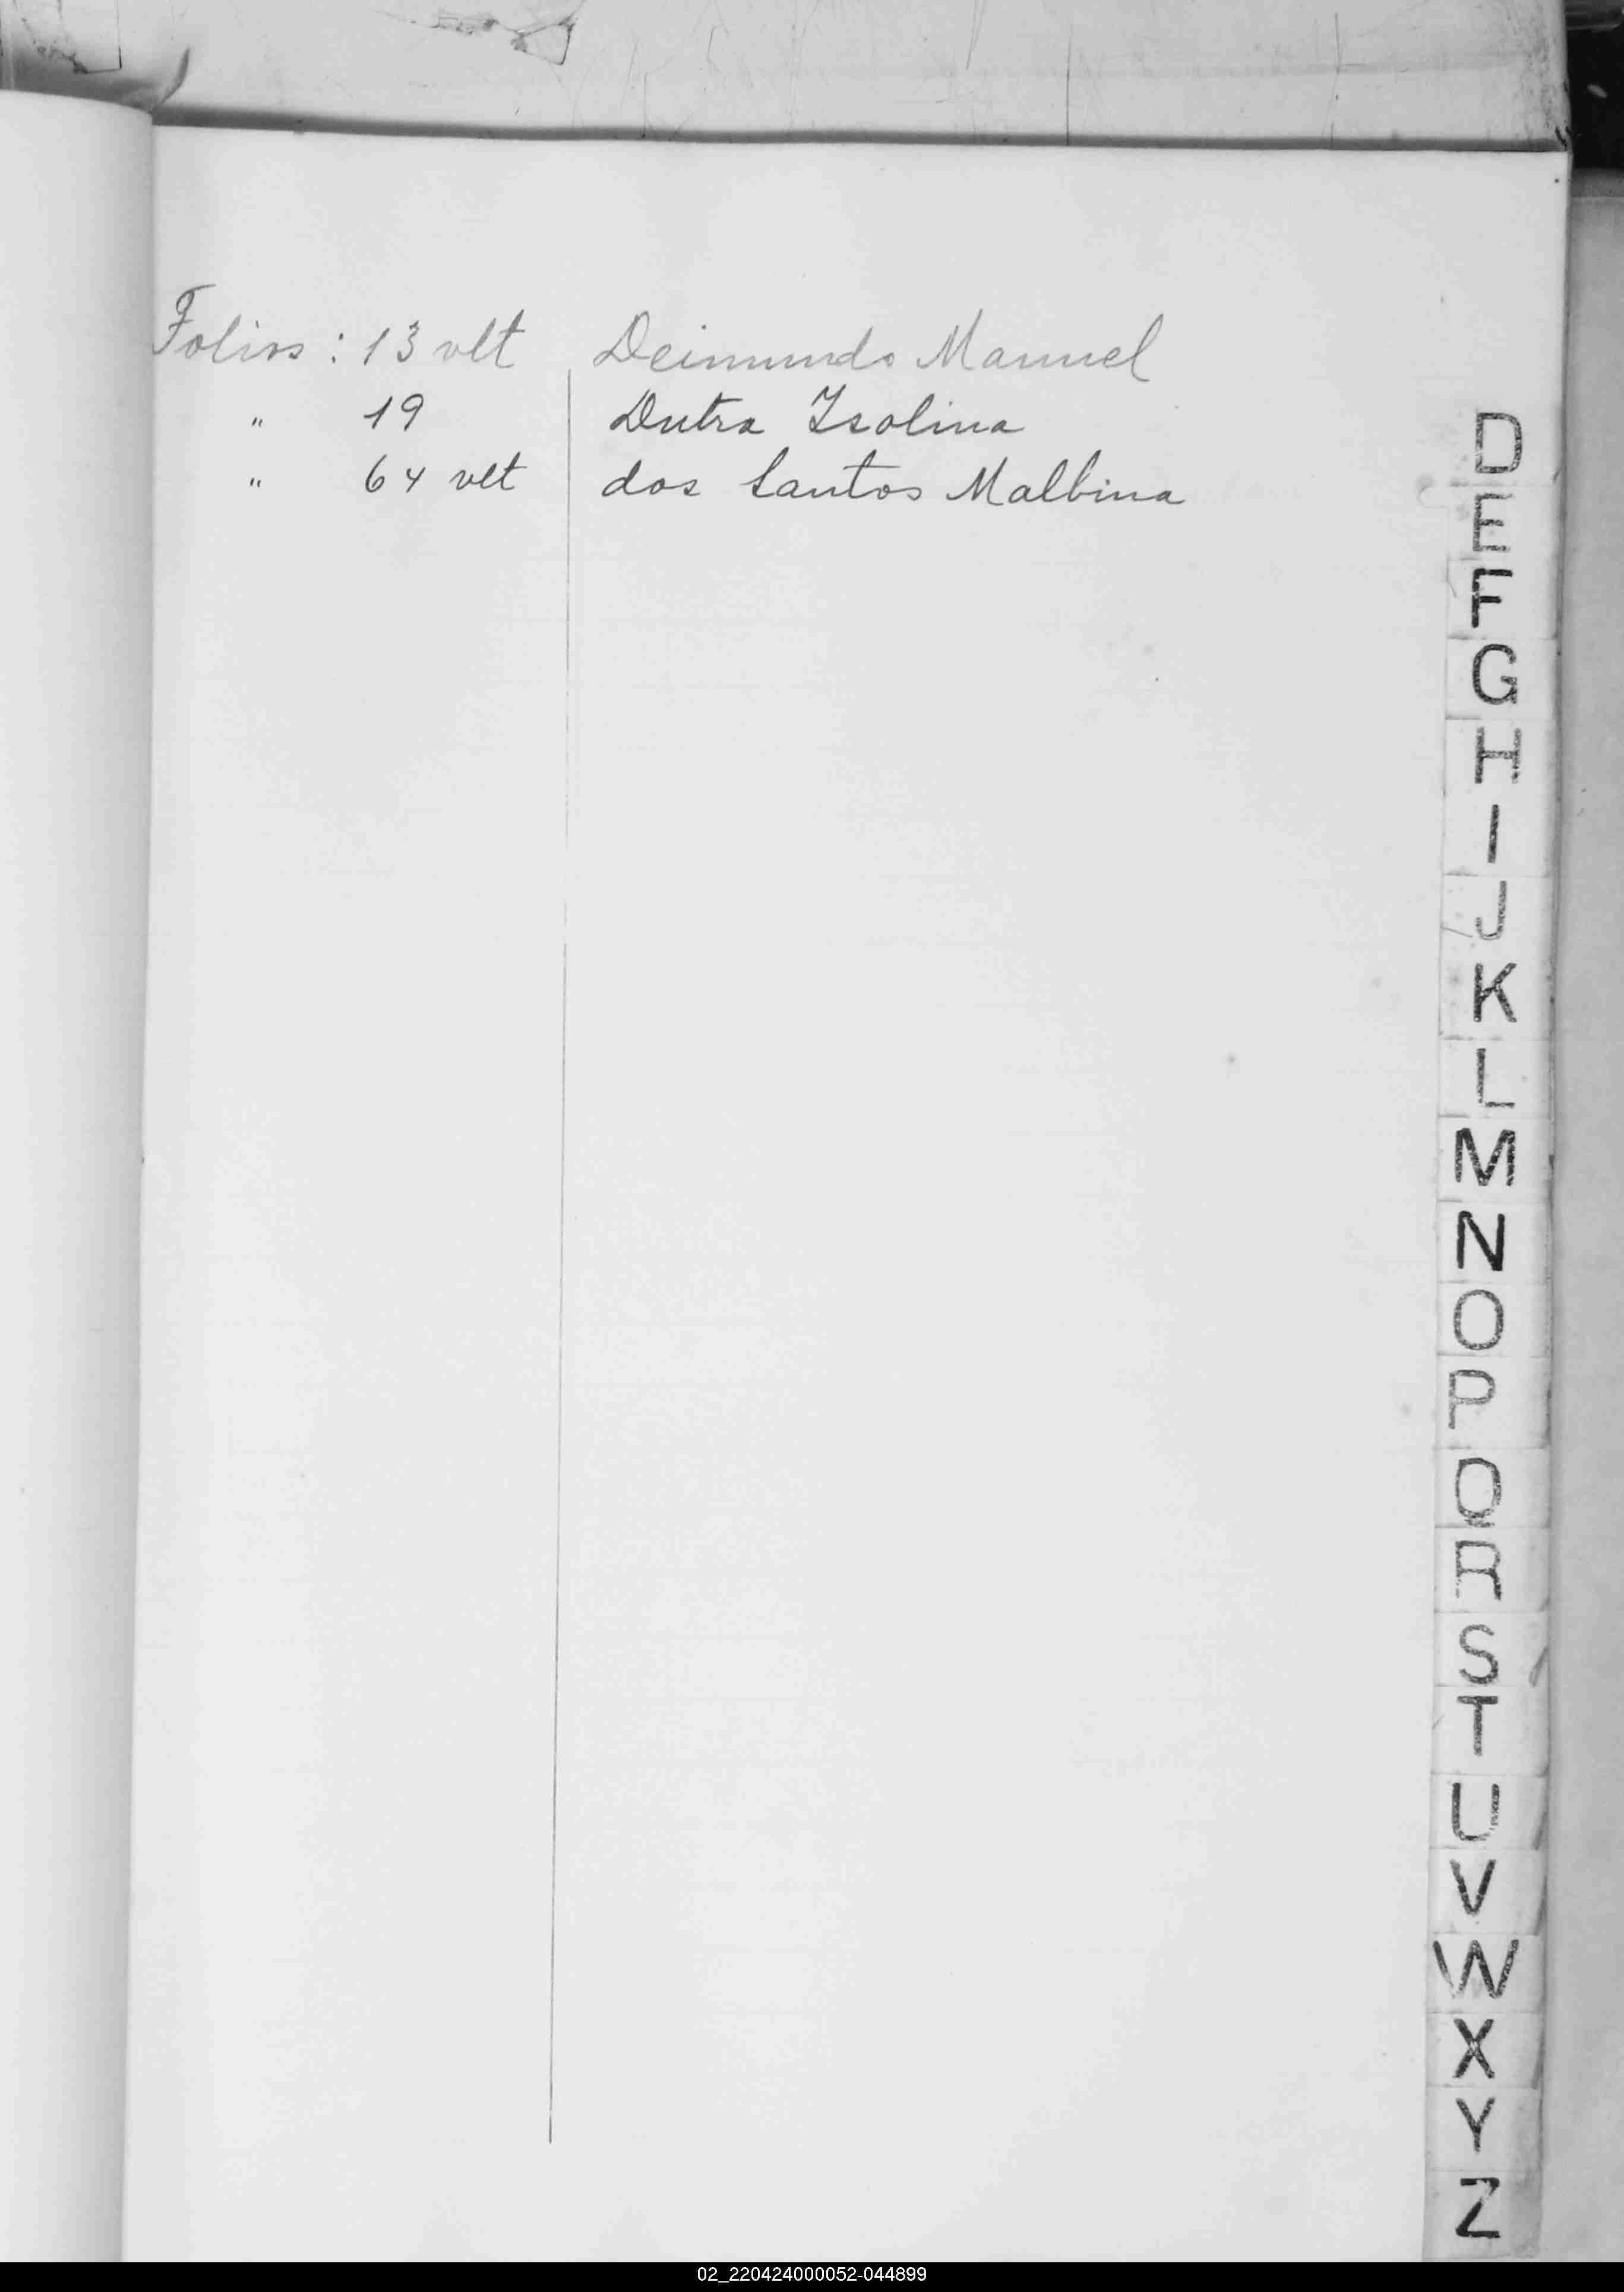 Folios : 13 vlt Deimundo Manuel
" 19 Dutra Isolina
" 64 vlt dos Santos Malbina
D
E
F
G
H
I
J
K
L
M
N
O
P
Q
R
S
T
U
V
W
X
Y
Z
02_220424000052-044899